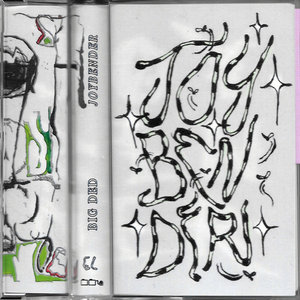 BIG DED JOYBENDER
JOY
BEN
DER